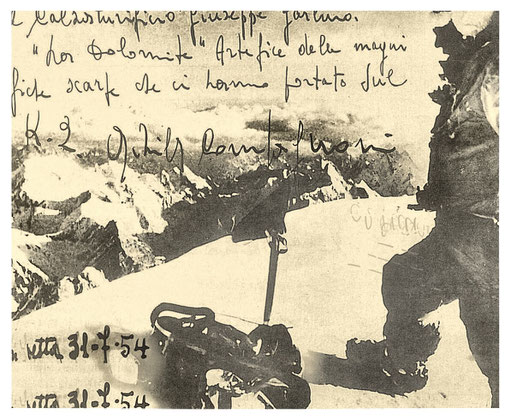 Calzaturificio Giuseppe Garbuio.
"Les Dolomite" Artefice della magni
fiche scarpe che ci hanno portato sul
K.2 Achille Compagnoni
vetta 31·7·54
vetta 31·7·54